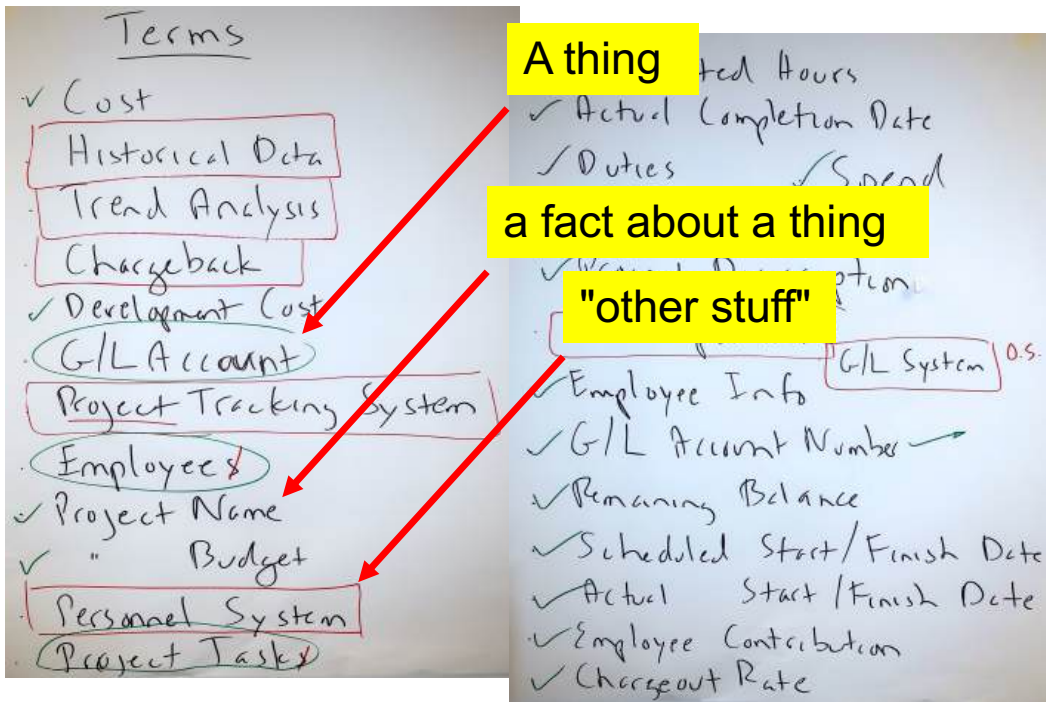 Terms
Cost
Historical Data
Trend Analysis
Chargeback
Development Cost
G/L Account
Project Tracking System
Employees
Project Name
" Budget
Personnel System
Project Tasks
A thing
a fact about a thing
"other stuff"
ted Hours
Actual Completion Date
Duties
Spend
ption
G/L System O.S.
Employee Info
G/L Account Number
Remaining Balance
Scheduled Start/Finish Date
Actual Start/Finish Date
Employee Contribution
Chargeout Rate